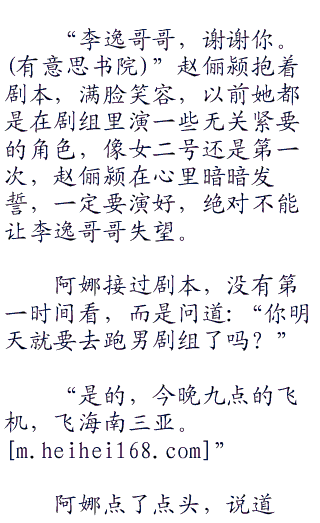 “李逸哥哥，谢谢你。
(有意思书院)”赵俪颍抱着
剧本，满脸笑容，以前她都
是在剧组里演一些无关紧要
的角色，像女二号还是第一
次，赵俪颍在心里暗暗发
誓，一定要演好，绝对不能
让李逸哥哥失望。
阿娜接过剧本，没有第
一时间看，而是问道：“你明
天就要去跑男剧组了吗？”
“是的，今晚九点的飞
机，飞海南三亚。
[m.heihei168.com]”
阿娜点了点头，说道